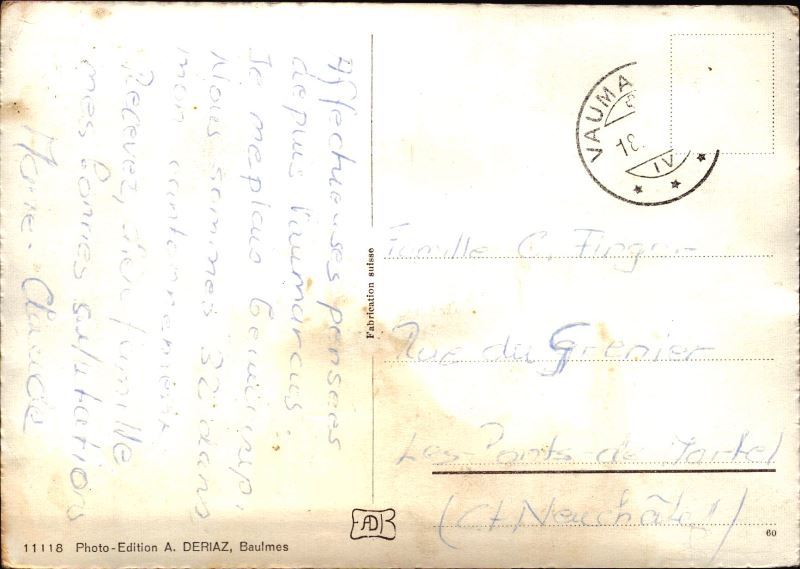 Affectueuses pensées
depuis Vaumarcus.
Je me plais beaucoup,
Nous sommes 32 dans
mon cantonnement.
Recevez, chère famille
mes bonnes salutations
Marie-Claude
Fabrication suisse
VAUMA
18.
IV
Famille C. Finger
Rue du Grenier
Les Ponts-de-Martel
(Ct Neuchâtel)
11118 Photo-Edition A. DERIAZ, Baulmes
60